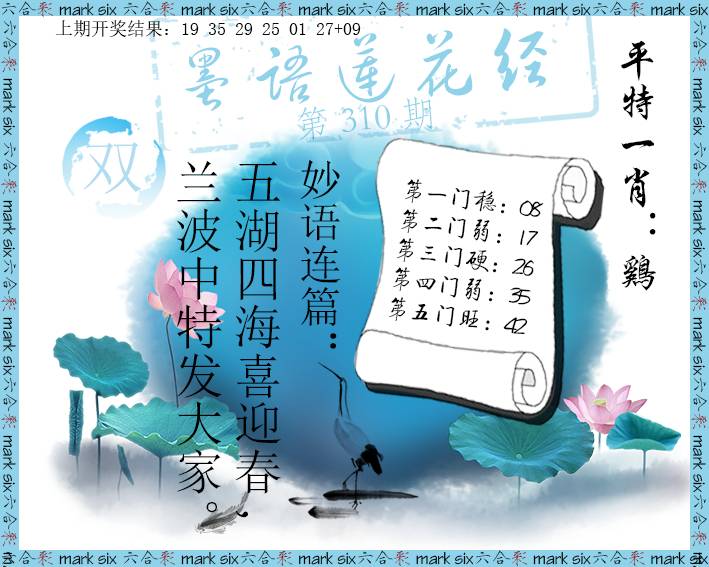 上期开奖结果：19 35 29 25 01 27+09
墨语莲花经
第 310 期
双
平特一肖：鷄
第一门稳：08
第二门弱：17
第三门硬：26
第四门弱：35
第五门旺：42
妙语连篇：
五湖四海喜迎春，
兰波中特发大家。
六合彩 mark six 六合彩 mark six 六合彩 mark six 六合彩 mark six 六合彩 mark six 六合彩